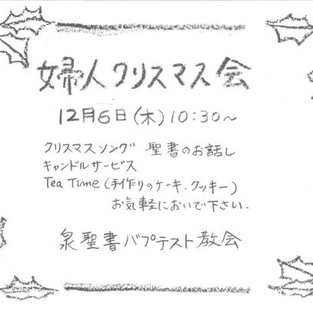 婦人クリスマス会
12月6日(木)10:30~
クリスマスソング 聖書のお話し
キャンドルサービス
Tea Time(手作りのケーキ.クッキー)
お気軽においで下さい.
泉聖書バプテスト教会